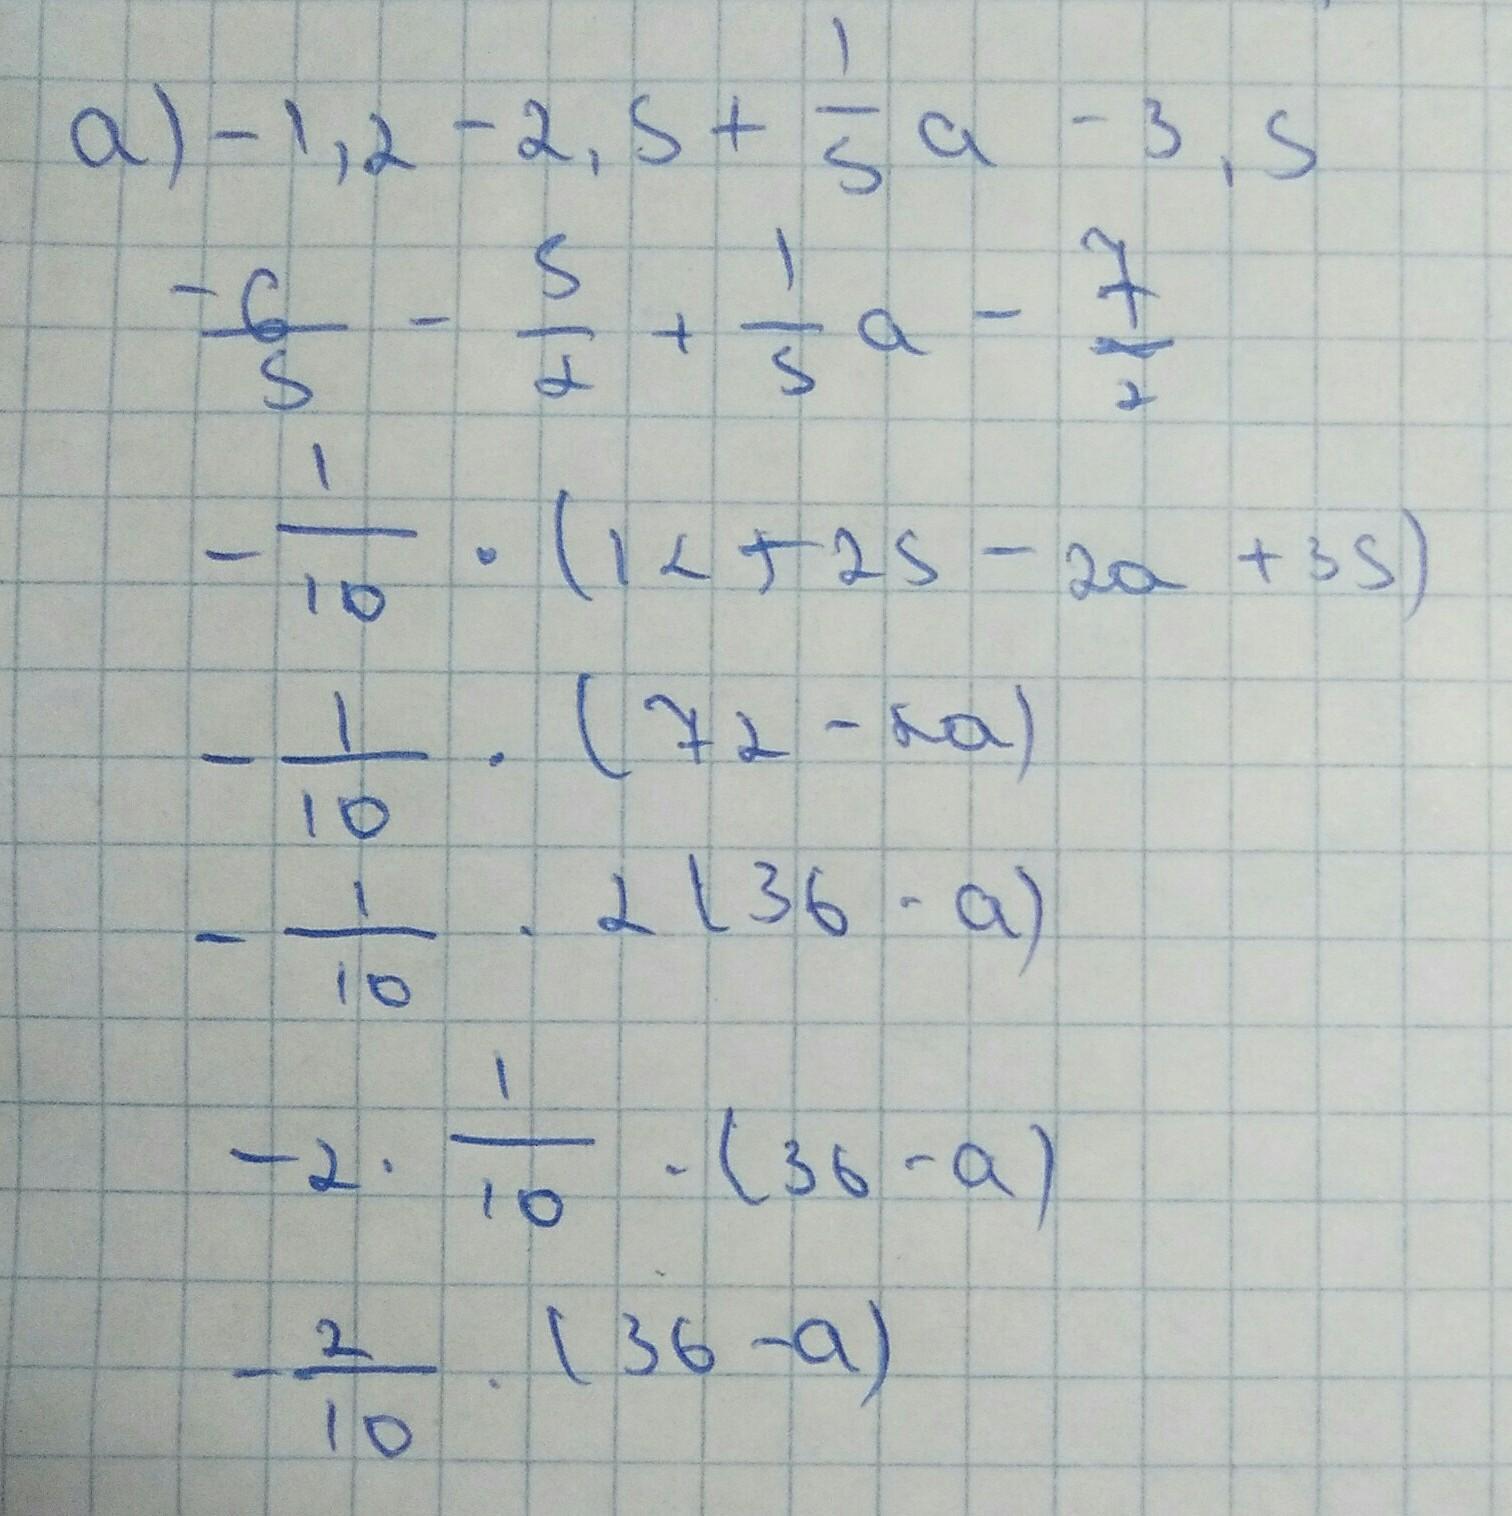 a) -1,2 - 2,5 + 1/5 a - 3,5
-6/5 - 5/2 + 1/5 a - 7/2
- 1/10 · (12 + 25 - 2a + 35)
- 1/10 · (72 - 2a)
- 1/10 · 2 (36 - a)
-2 · 1/10 · (36 - a)
- 2/10 · (36 - a)